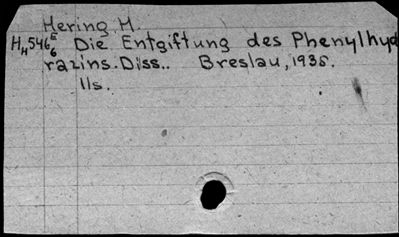 Hering M.
HH5465 Die Entgiftung des Phenylhyd
6 razins. Diss.. Breslau, 1935.
11s.